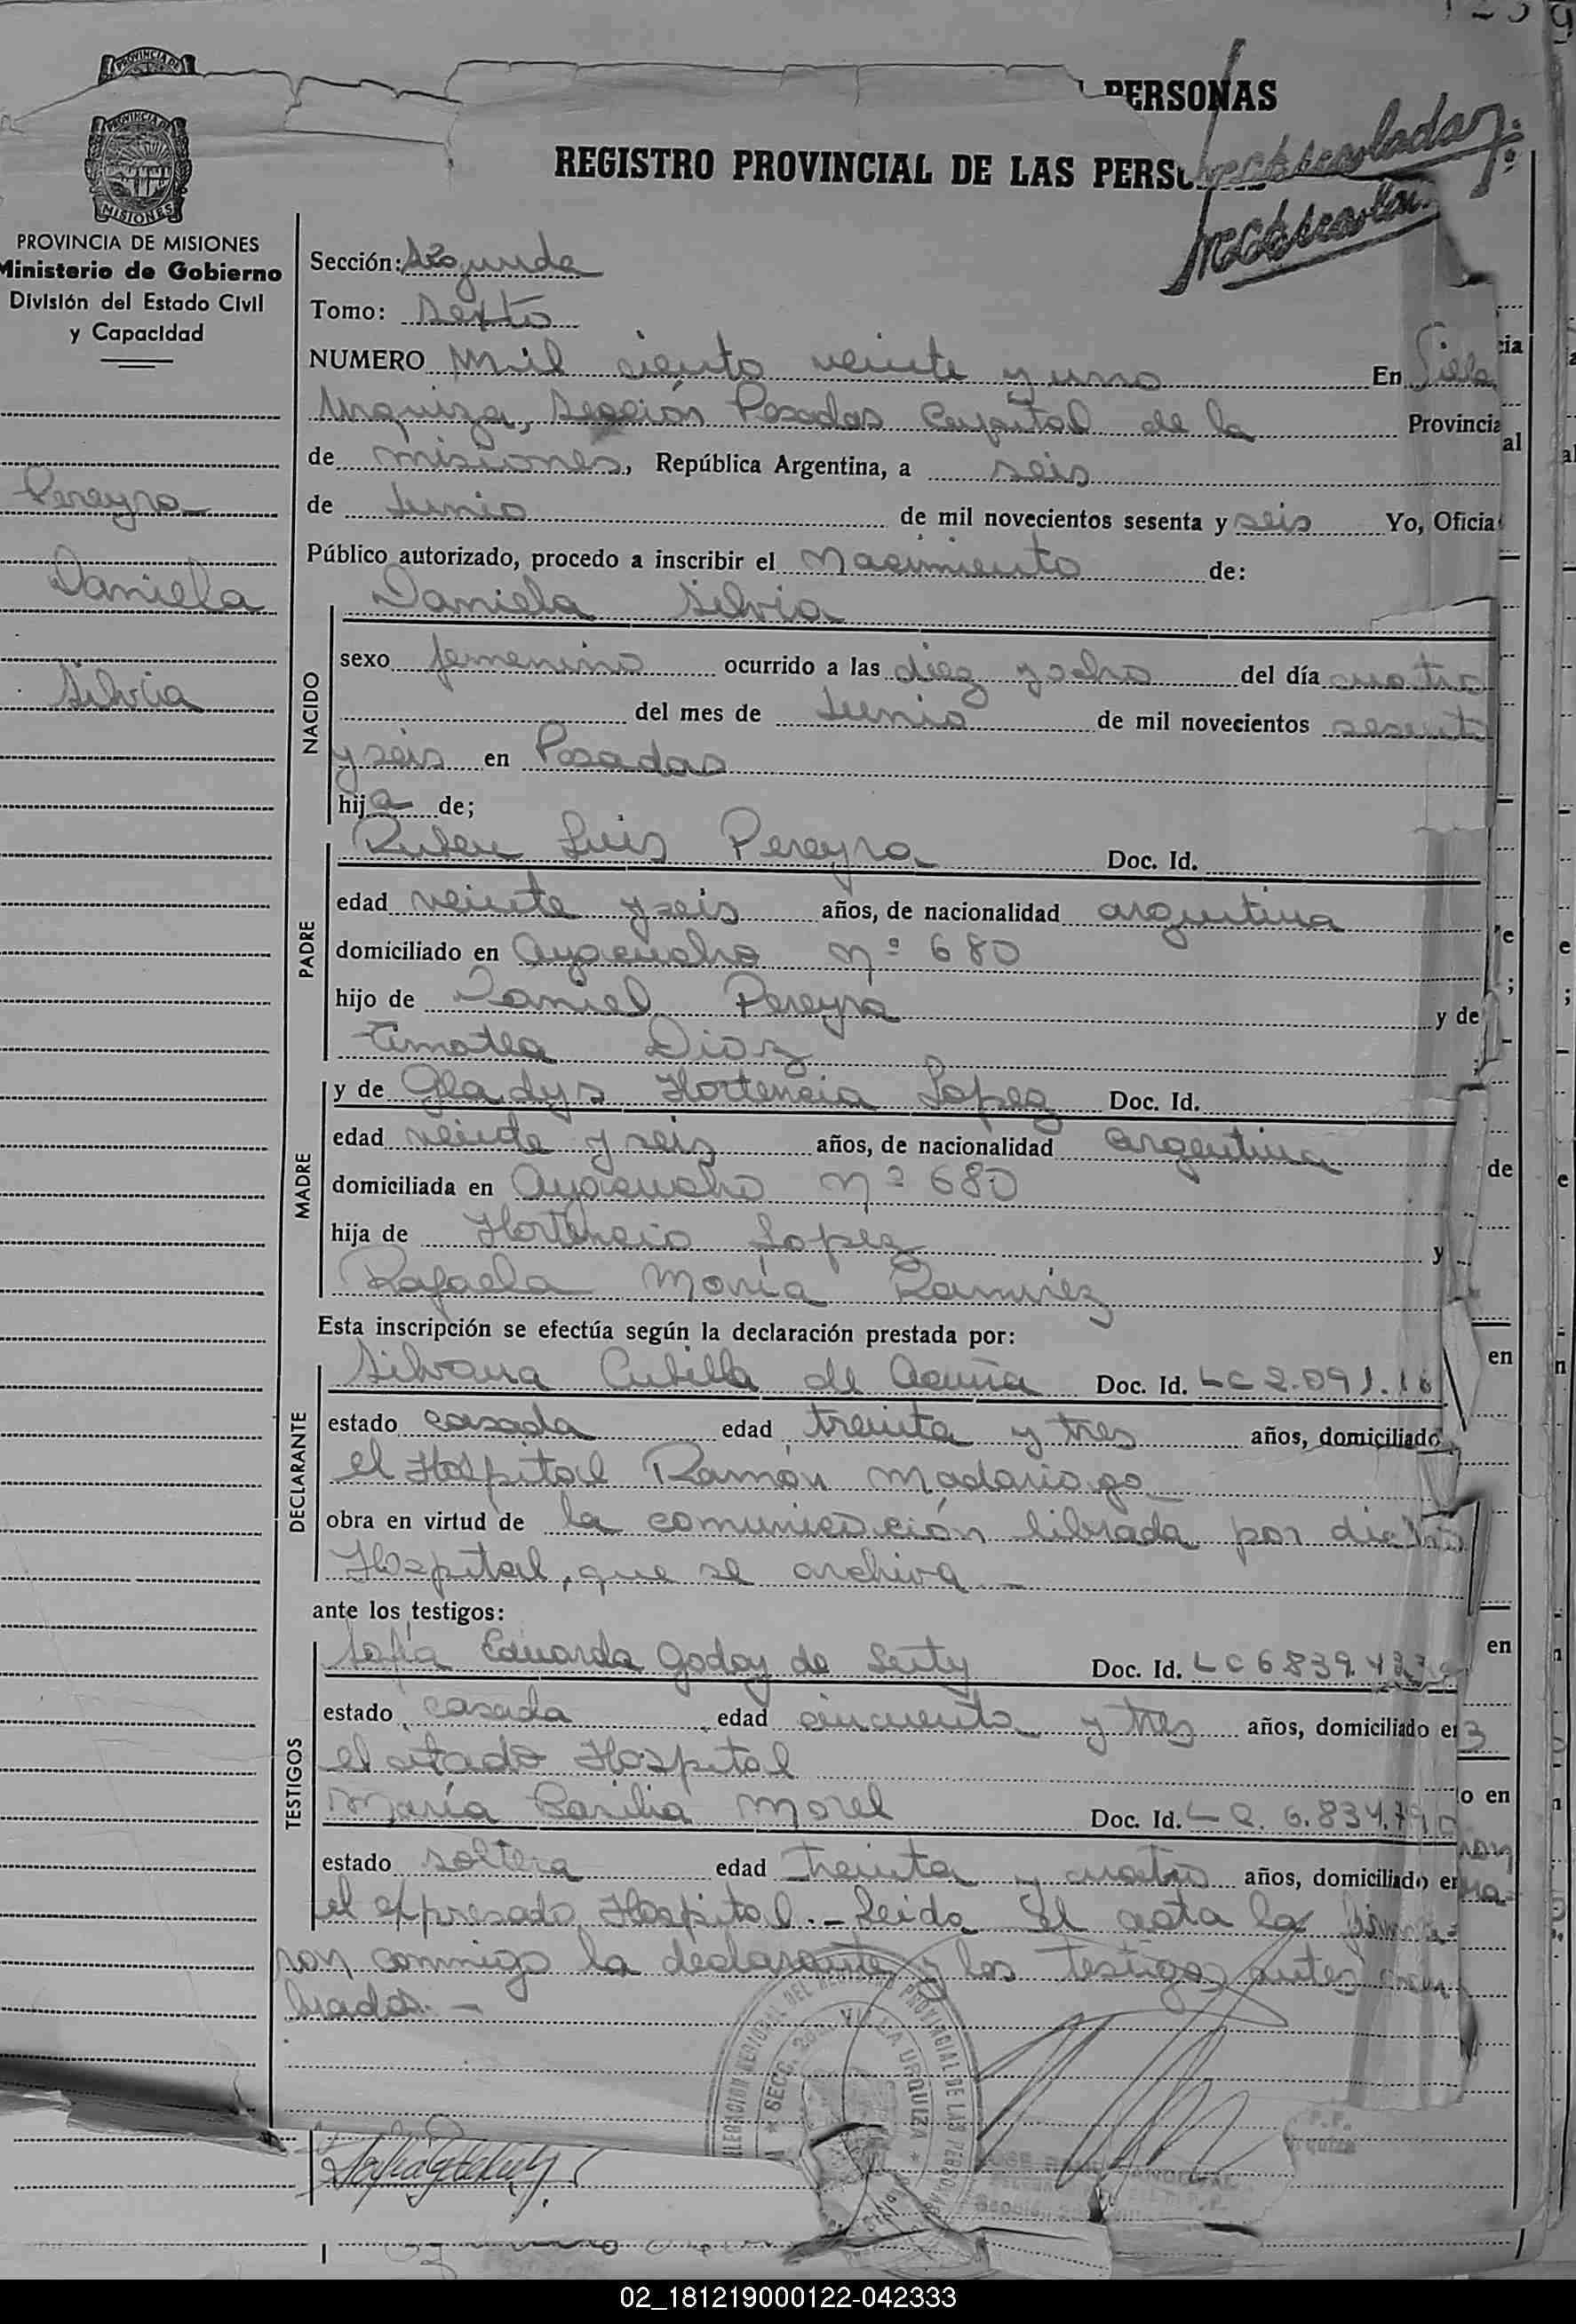 PERSONAS
REGISTRO PROVINCIAL DE LAS PERSO
PROVINCIA DE
MISIONES
PROVINCIA DE MISIONES
Ministerio de Gobierno
División del Estado Civil
y Capacidad
Pereyra
Daniella
Silvia
Sección: Segunda
Tomo: Sexto
NUMERO Mil ciento veinte y uno En Villa
Urquiza, Sección Posadas Capital de la Provincia
de Misiones, República Argentina, a seis
de Junio de mil novecientos sesenta y seis Yo, Oficial
Público autorizado, procedo a inscribir el Nacimiento de:
NACIDO
Daniela Silvia
sexo femenino ocurrido a las diez y ocho del día cuatro
del mes de Junio de mil novecientos sesenta
y seis en Posadas
hija de;
PADRE
Ruben Luis Pereyra Doc. Id.
edad veinte y seis años, de nacionalidad argentina
domiciliado en Ayacucho nº 680
hijo de Daniel Pereyra y de
Timotea Diaz
MADRE
y de Gladys Hortencia Lopez Doc. Id.
edad veinte y seis años, de nacionalidad argentina
domiciliada en Ayacucho nº 680
hija de Hortencio Lopez y
Rafaela María Ramirez
Esta inscripción se efectúa según la declaración prestada por:
DECLARANTE
Silvana Cubilla de Acuña Doc. Id. LC 2.091.16
estado casada edad treinta y tres años, domiciliado
el Hospital Ramón Madariaga
obra en virtud de la comunicación librada por dicho
Hospital, que se archiva.-
ante los testigos:
TESTIGOS
Sofía Eduarda Godoy de Doc. Id. LC 6839.4
estado casada edad cincuenta y tres años, domiciliado en
el citado Hospital
María Basilia Morel Doc. Id. L C. 6.834.790
estado soltera edad treinta y cuatro años, domiciliado en
el expresado Hospital.- Leida el acta la firma=
ron conmigo la declarante y los testigos antes nom
brados.-
SECC. 2da. VILLA URQUIZA
02_181219000122-042333